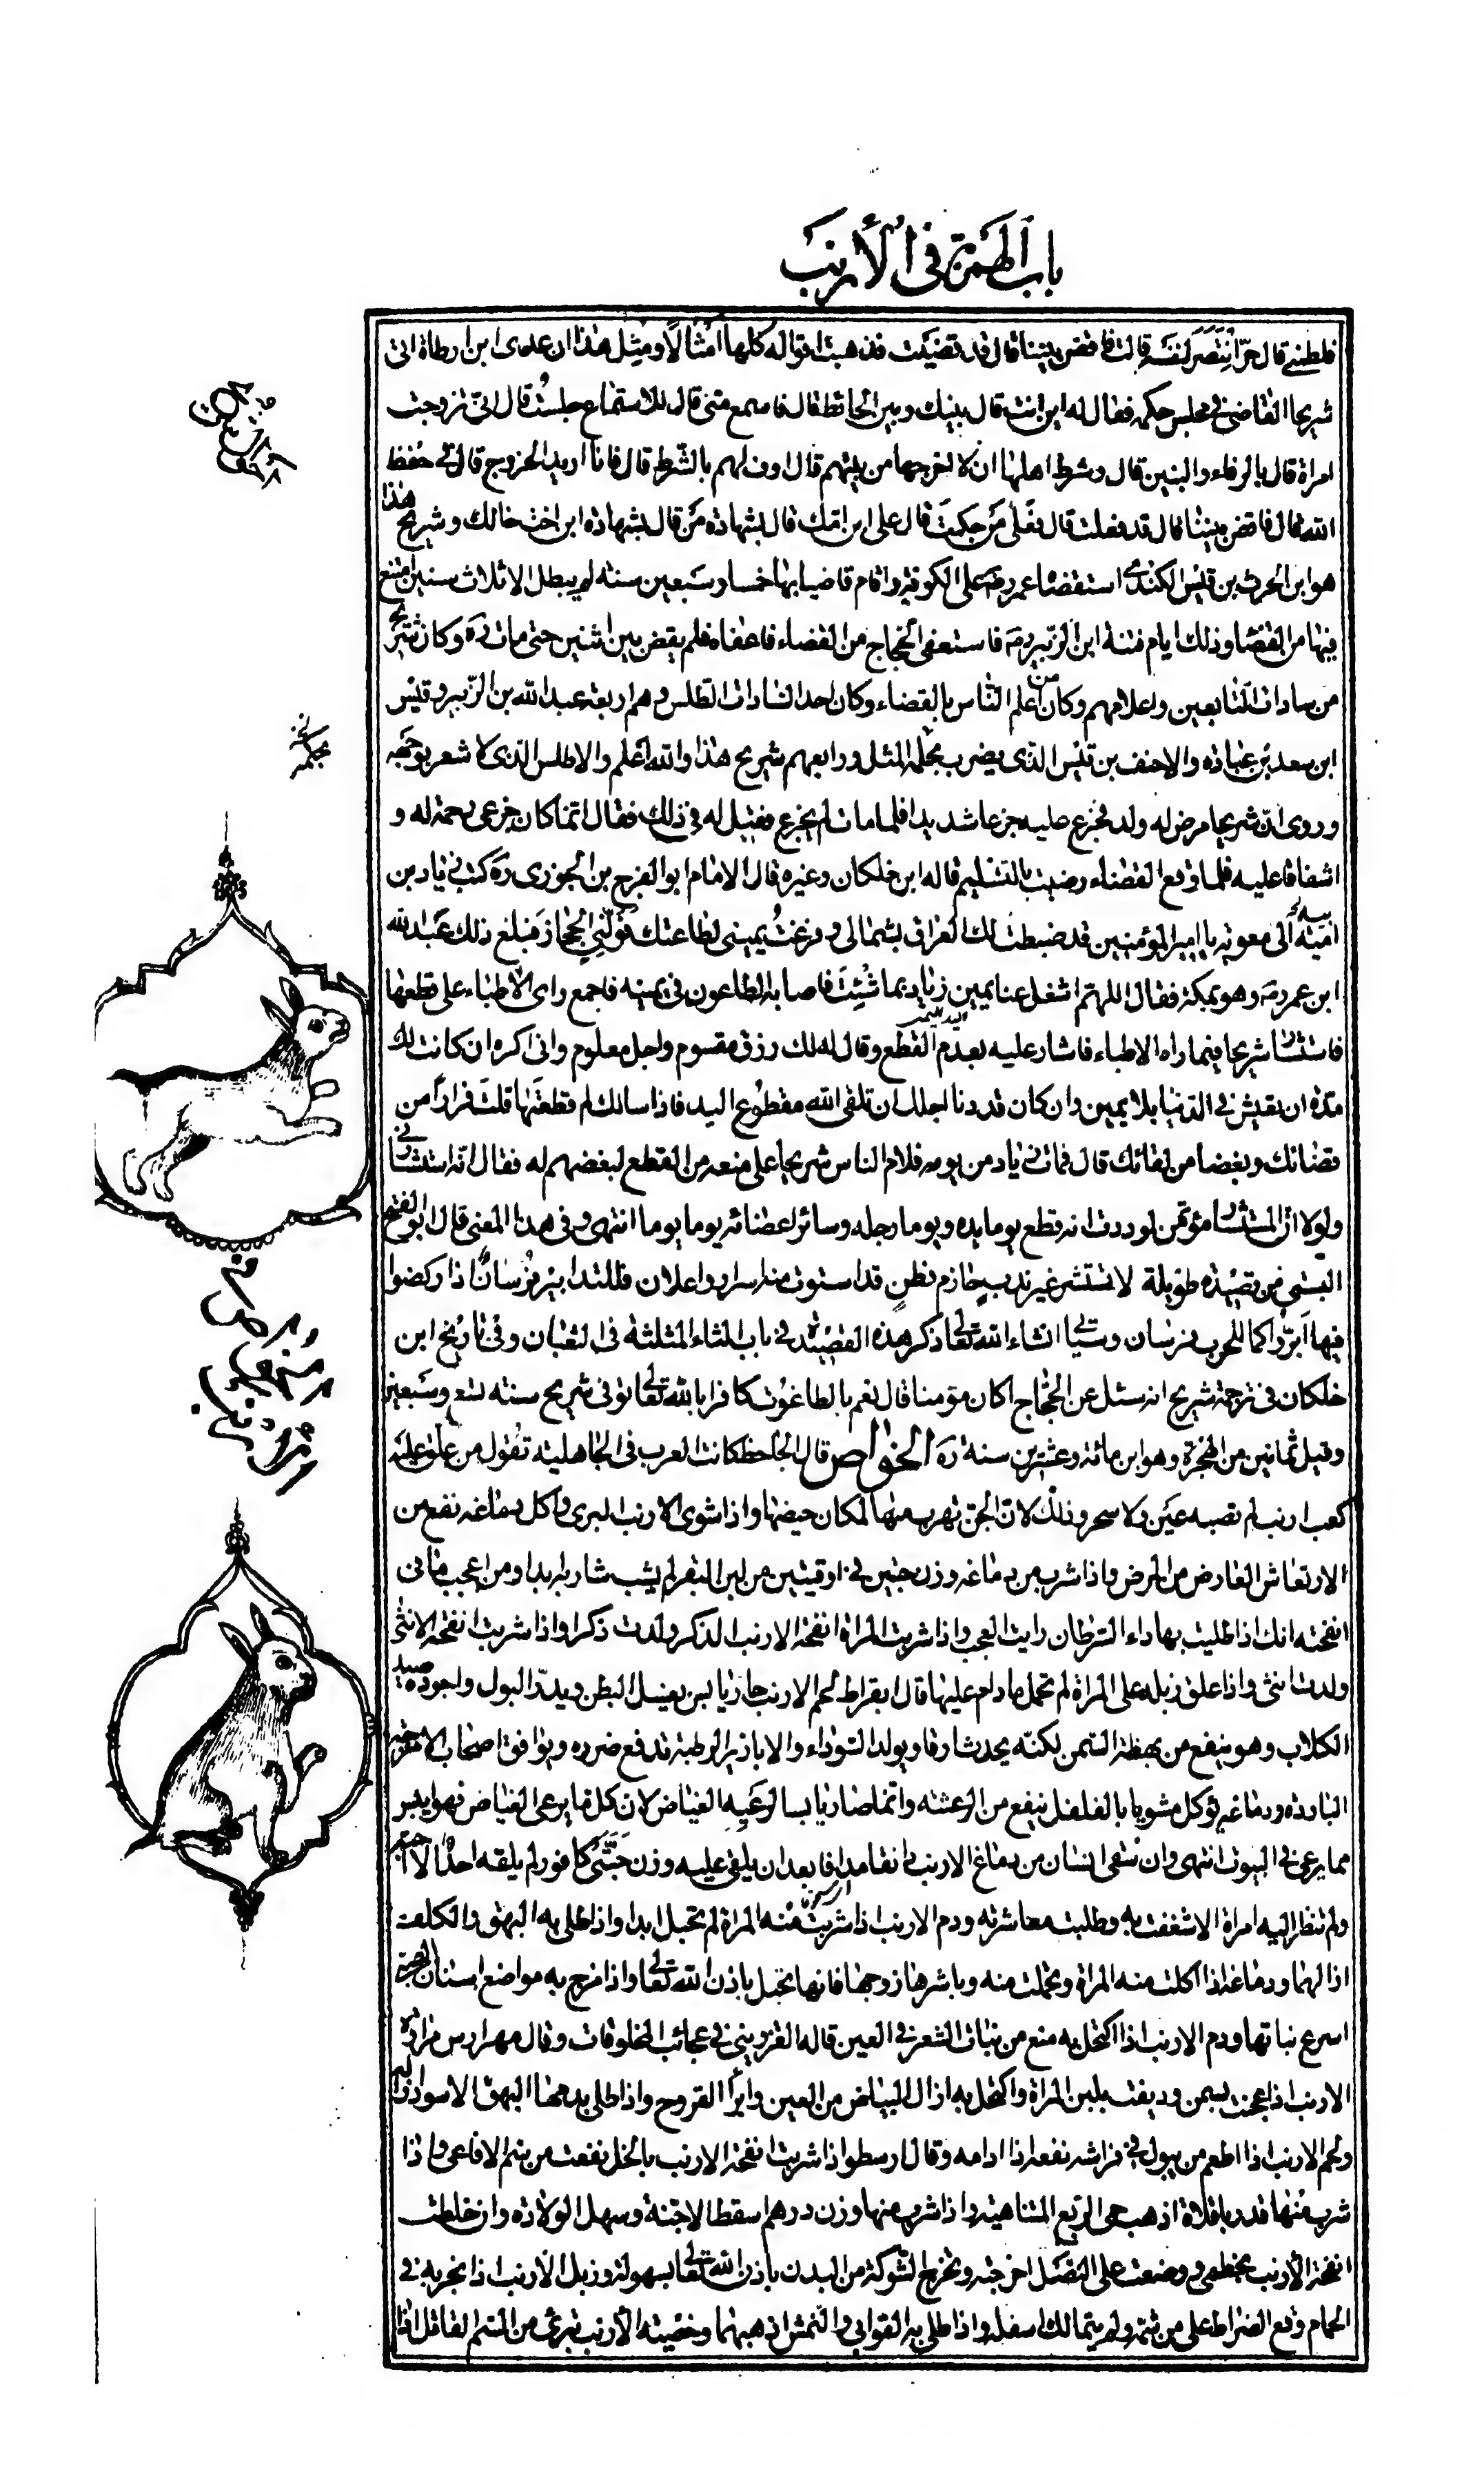 باب الهمزة في الأرنب
فلطمنی قال حرّ انتصر لنفسه قالت فاقض بيننا قال قد قضيت فذهبت اقواله كلها امثالا ومثل هذا ان عدى ابن ارطاة اتى
شريحا القاضى فى مجلس حكمه فقال له اين انت قال بينك وبين الحائط قال فاسمع منى قال للاستماع جلست قال انى تزوجت
امراة قال بالرفاء والبنين قال وشرط اهلها ان لا اخرجها من بيتهم قال اوف لهم بالشرط قال فانا اريد الخروج قال فى حفظ
الله قال فاقض بيننا قال قد فعلت قال فعلى من حكمت قال على ابن امك قال بشهادة من قال بشهادة ابن اخت خالتك وشريح هذا
هو ابن الحرث بن قيس الكندى استقضاه عمر رضه على الكوفة واقام قاضيا بها خمسا وسبعين سنة لم يبطل الا ثلاث سنين امتنع
فيها من القضا وذلك ايام فتنة ابن الزبير رضه فاستعفى الحجاج من القضاء فاعفاه فلم يقض بين اثنين حتى مات ره وكان شريح
من سادات التابعين واعلامهم وكان من اعلم الناس بالقضاء وكان احد السادات الطلس وهم اربعة عبد الله بن الزبير وقيس
ابن سعد بن عبادة والاحنف بن قيس الذى يضرب بحلمه المثل ورابعهم شريح هذا والله اعلم والاطلس الذى لا شعر بوجهه
وروى ان شريحا مرض له ولد فجزع عليه جزعا شديدا فلما مات لم يجزع فقيل له فى ذلك فقال انما كان جزعى رحمة له و
اشفاقا عليه فلما وقع القضاء رضيت بالتسليم قاله ابن خلكان وغيره قال الامام ابو الفرج بن الجوزى ره كتب زياد بن
ابيه الى معوية يا امير المؤمنين قد ضبطت لك العراق بشمالى وفرغت يمينى لطاعتك فولنى الحجاز فبلغ ذلك عبد الله
ابن عمر رضه وهو بمكة فقال اللهم اشغل عنا يمين زياد بما شئت فاصابه الطاعون فى يمينه فاجمع راى الاطباء على قطعها
فاستشار شريحا فيما راه الاطباء فاشار عليه بعدم القطع وقال له لك رزق مقسوم واجل معلوم وانى اكره ان كانت لك
مدة ان تعيش فى الدنيا بلا يمين وان كان قد دنا اجلك ان تلقى الله مقطوع اليد فاذا سالك لم قطعتها قلت فرارا من
قضائك وبغضا من لقائك قال فمات زياد من يومه فلام الناس شريحا على منعه من القطع لبغضهم له فقال انه استشارنى
ولولا ان المستشار مؤتمن لوددت انه قطع يوما يده ويوما رجله وسائر اعضائه يوما يوما انتهى وفى هذا المعنى قال ابو الفتح
البستى من قصيدة طويلة لا تستشر غير ندب حازم فطن قد استوت منه اسرار واعلان فللتدابير فرسان اذا ركضوا
فيها ابروا كما للحرب فرسان وسيأتى انشاء الله تعالى ذكر هذه القصيدة فى باب الثاء المثلثة فى الثعبان وفى تاريخ ابن
خلكان فى ترجمة شريح انه سئل عن الحجاج اكان مؤمنا قال نعم بالطاغوت كافرا بالله تعالى توفى شريح سنة تسع وسبعين
وقيل ثمانين من الهجرة وهو ابن مائة وعشرين سنة ره الخواص قال الجاحظ كانت العرب فى الجاهلية تقول من علق عليه
كعب ارنب لم تصبه عين ولا سحر وذلك لان الجن تهرب منها لمكان حيضها واذا شوى الارنب البرى واكل دماغه نفع من
الارتعاش العارض من المرض واذا شرب من دماغه وزن حبتين فى اوقيتين من لبن البقر لم يشب شاربه ابدا ومن اعجب ما فى
انفحته انك اذا طليت بها داء السرطان رايت العجب واذا شربت المراة انفحة الارنب الذكر ولدت ذكرا واذا شربت انفحة الانثى
ولدت انثى واذا علق زبله على المراة لم تحمل ما دام عليها قال بقراط لحم الارنب حار يابس يغسل البطن ويدر البول واجوده صيد
الكلاب وهو ينفع من به فظة السمن لكنه يحدث ارقا ويولد السوداء والابازير الرطبة تدفع ضرره ويوافق اصحاب الامزجة
الباردة ودماغه يؤكل مشويا بالفلفل ينفع من الرعشة وانما صار يابسا لرعيه الغياض لان كل ما يرعى الغياض فهو ايبس
مما يرعى فى البيوت انتهى وان سقى انسان من دماغ الارنب دانقا مدافا بعد ان يلقى عليه وزن حبتى كافور لم يلقه احد الا احبه
ولم تنظر اليه امراة الا شغفت به وطلبت معاشرته ودم الارنب اذا شربت منه المراة لم تحبل ابدا واذا طلى به البهق والكلف
ازالهما ودماغه اذا اكلت منه المراة وتحملت منه وباشرها زوجها فانها تحبل باذن الله تعالى واذا مزج به مواضع اسنان الصبى
اسرع نباتها ودم الارنب اذا اكتحل به منع من نبات الشعر فى العين قاله القزوينى فى عجائب المخلوقات وقال مهرارس مرارة
الارنب اذا عجنت بسمن وديفت بلبن المراة واكتحل به ازال البياض من العين وابرا القروح واذا طلى بدمها البهق الاسود ازاله
ولحم الارنب اذا اطعم من يبول فى فراشه نفعه اذا ادامه وقال ارسطو اذا شربت انفحة الارنب بالخل نفعت من سم الافاعى واذا
شرب منها قدر باقلاة اذهب حمى الربع المتناهية واذا شرب منها وزن درهم اسقط الاجنة وسهل الولادة وان خلطت
انفحة الأرنب بخطمى ووضعت على النصل اخرجته وتخرج الشوكة من البدن باذن الله تعالى بسهولة وزبل الأرنب اذا تبخر به فى
الحمام وقع الضراط على من شمه ولم يتمالك اسفله واذا طلى به القوابى والنمش اذهبهما وخصية الأرنب تبرئ من السم القاتل اذا